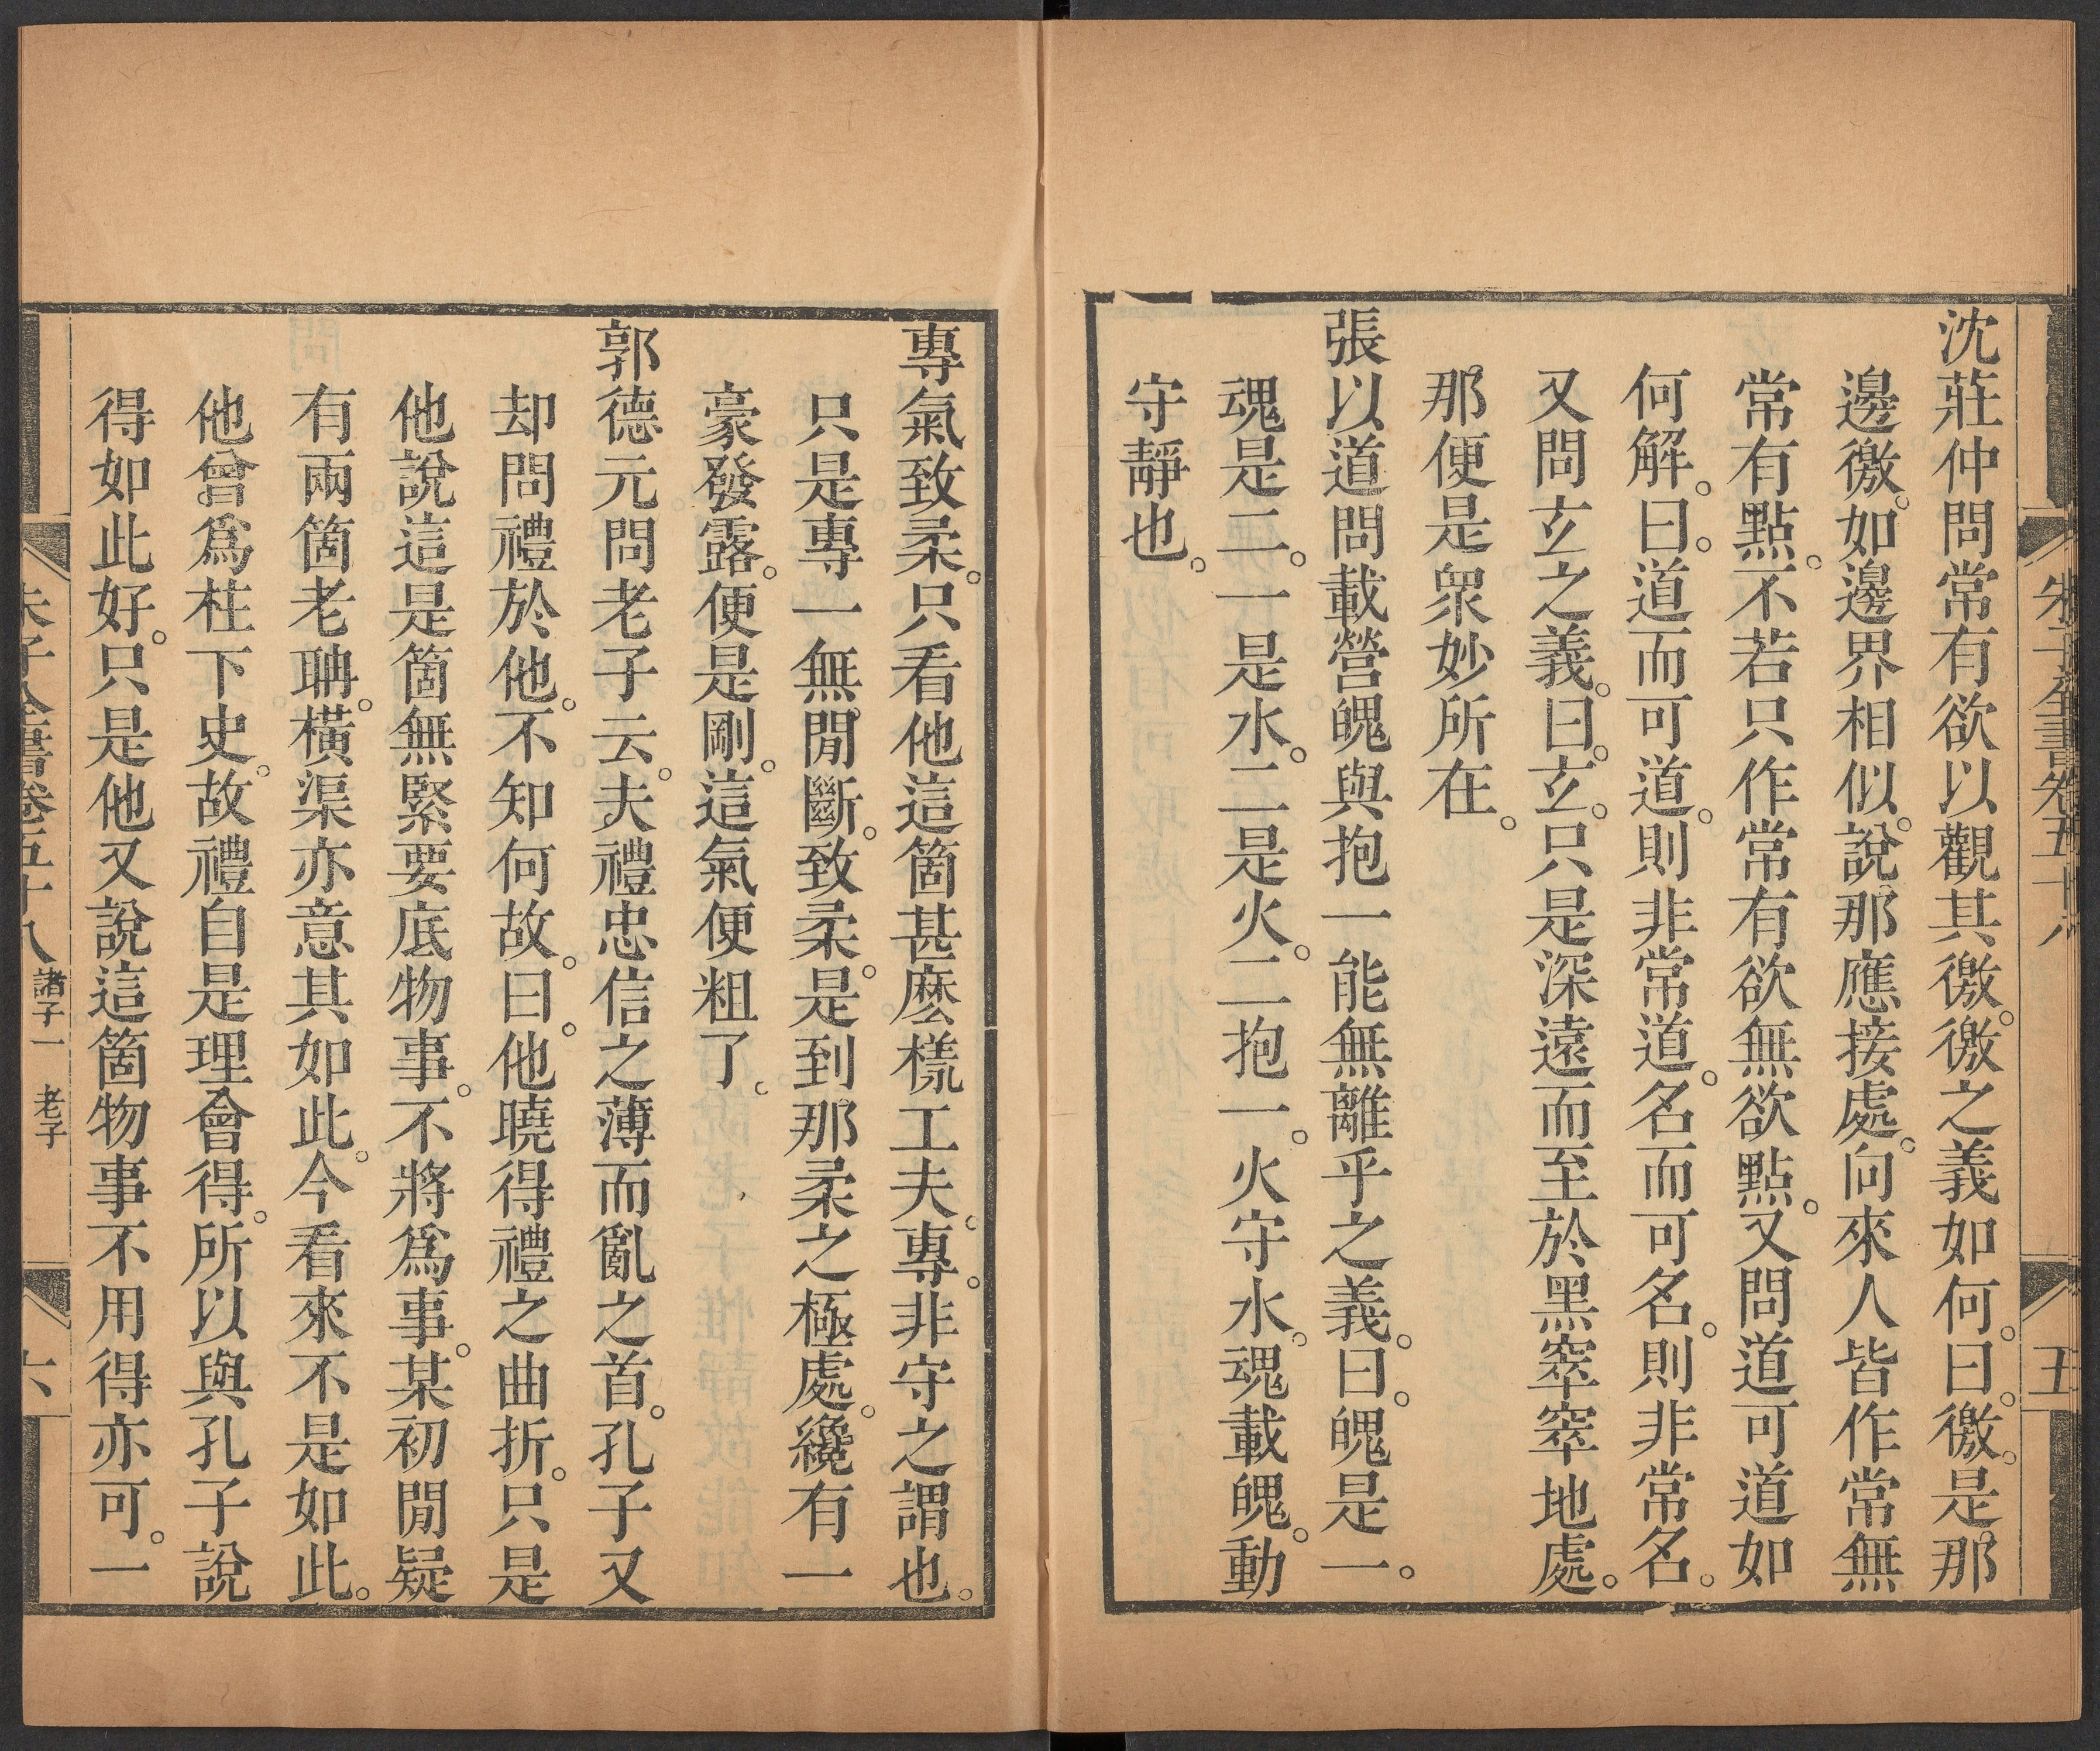 朱子全書卷五十八
五
沈莊仲問常有欲以觀其徼。徼之義如何。曰。徼。是那
邊徼。如邊界相似。說那應接處。向來人皆作常無
常有點。不若只作常有欲無欲點。又問道可道如
何解。曰。道而可道。則非常道。名而可名。則非常名。
又問玄之義。曰。玄。只是深遠而至於黑窣窣地處。
那便是衆妙所在。
張以道問載營魄與抱一能無離乎之義。曰。魄是一。
魂是二。一是水。二是火。二抱一。火守水。魂載魄。動
守靜也。
專氣致柔。只看他這箇甚麽樣工夫。專。非守之謂也。
只是專一無閒斷。致柔。是到那柔之極處。纔有一
豪發露。便是剛。這氣便粗了。
郭德元問老子云。夫禮忠信之薄而亂之首。孔子又
却問禮於他。不知何故。曰。他曉得禮之曲折。只是
他說這是箇無緊要底物事。不將爲事。某初閒疑
有兩箇老聃。橫渠亦意其如此。今看來不是如此。
他曾爲柱下史。故禮自是理會得。所以與孔子說
得如此好。只是他又說這箇物事不用得亦可。一
朱子全書卷五十八 諸子一 老子
六